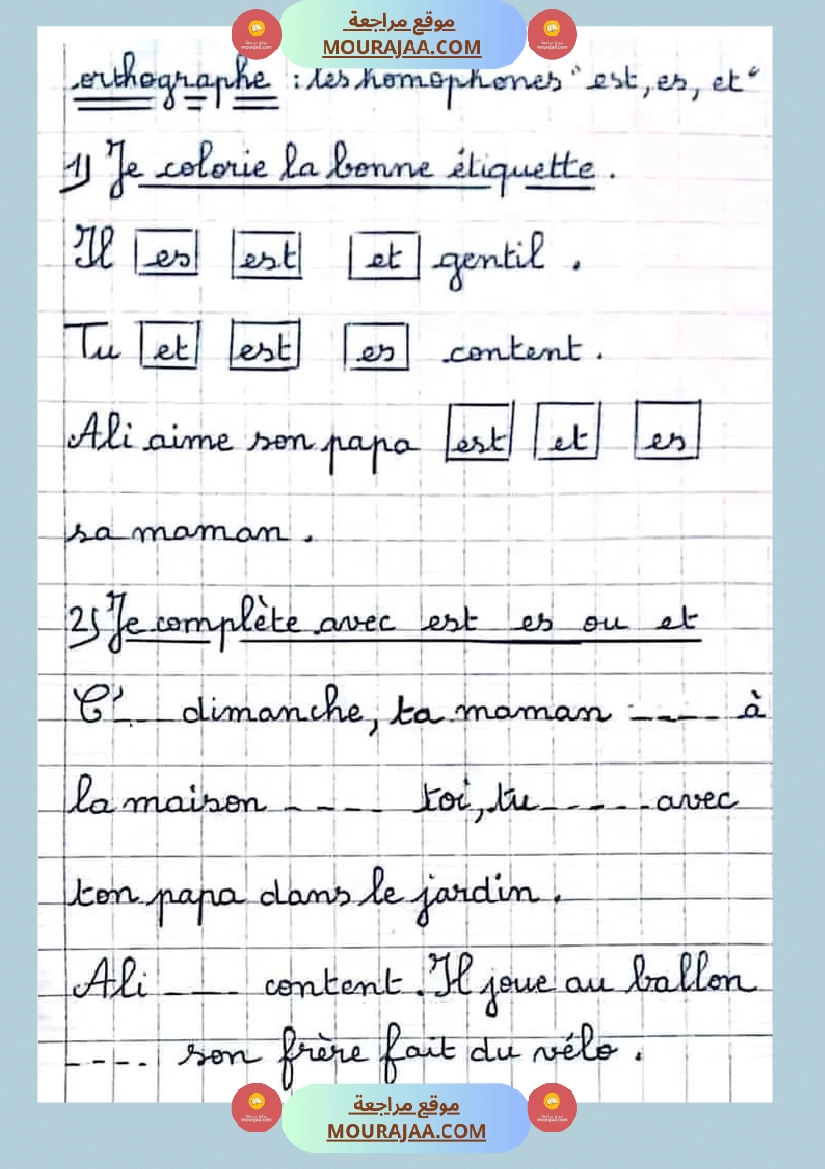 موقع مراجعة
MOURAJAA.COM
orthographe : les homophones " est, es, et "
1) Je colorie la bonne étiquette.
Il es est et gentil.
Tu et est es content.
Ali aime son papa est et es
sa maman.
2) Je complète avec est es ou et
C'... dimanche, ta maman ---- à
la maison ---- toi, tu ----- avec
ton papa dans le jardin.
Ali ___ content. Il joue au ballon
---- son frère fait du vélo.
موقع مراجعة
MOURAJAA.COM